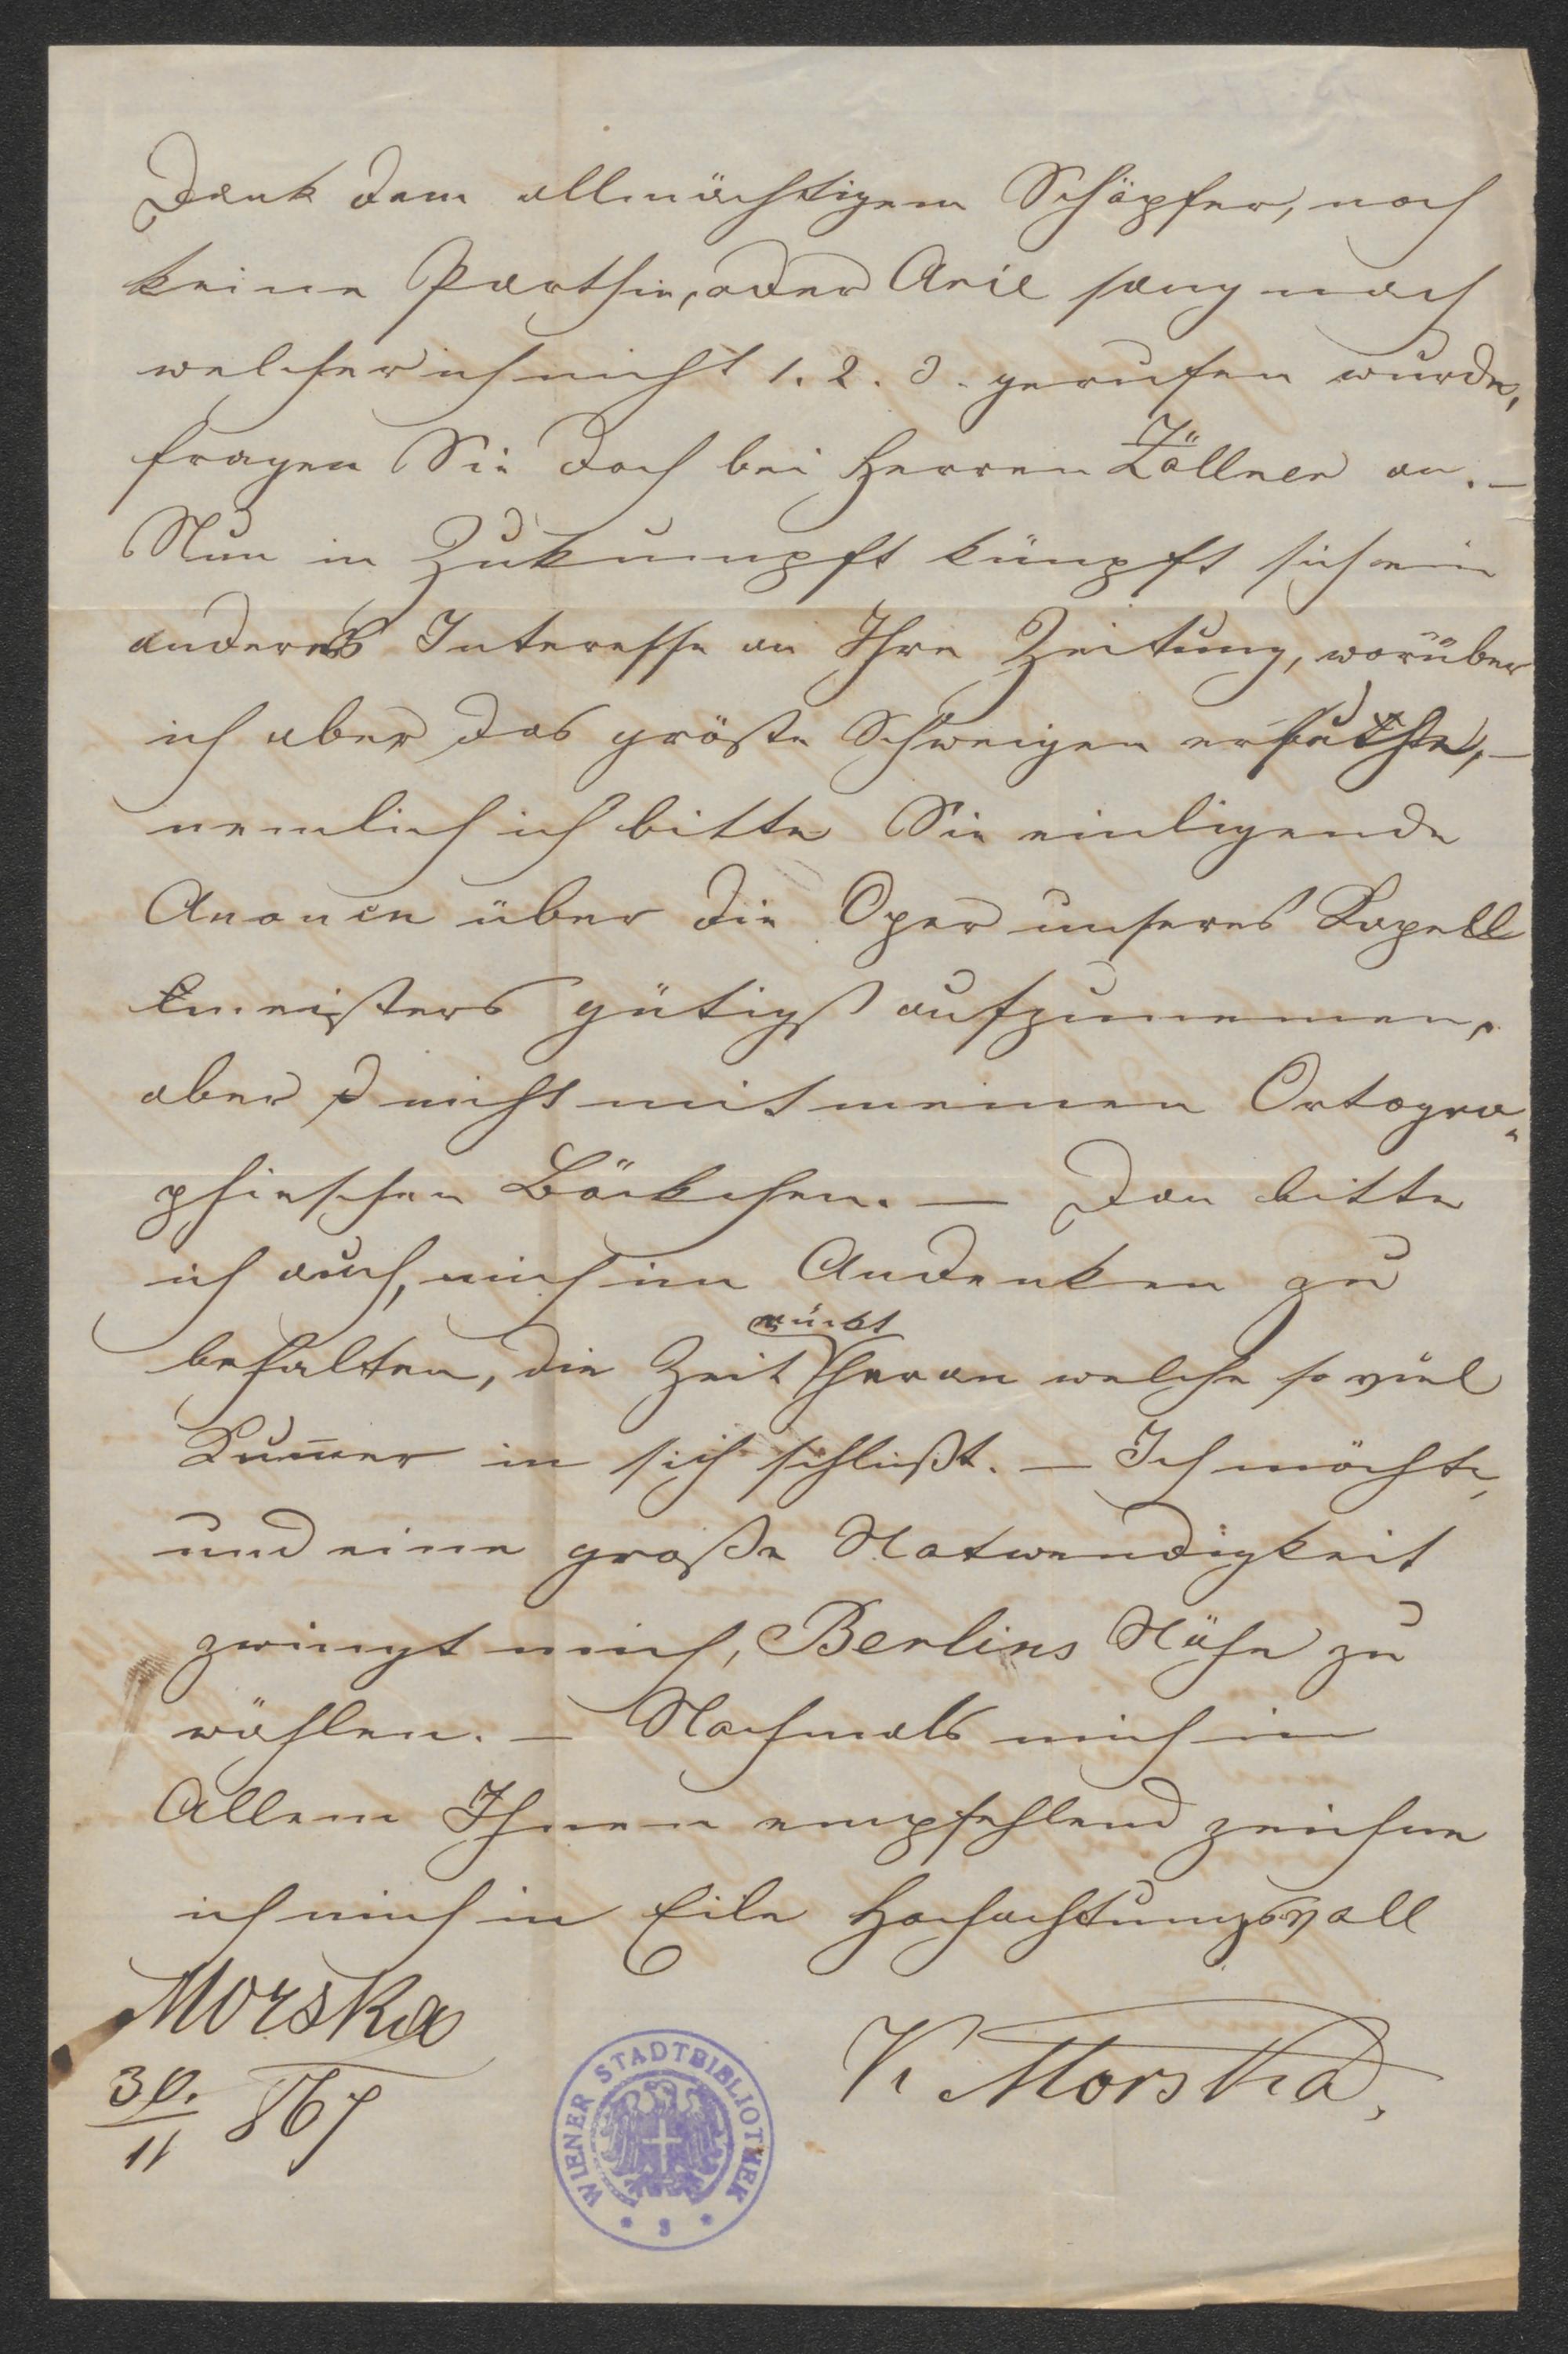 Dank dem allmächtigem Schöpfer, noch
keine Parthie, oder Arie sang nach
welcher ich nicht 1. 2. 3. gerufen wurde,
fragen Sie doch bei Herren Zöllner an. —
Nun in Zukumpft künpft sich ein
anderes Interesse an Ihre Zeitung, worüber
ich aber das größte Schweigen ersuche, —
nemlich ich bitte Sie einligende
Anonce über die Oper unseres Kapell
meisters gütigst aufzunemen,
aber nicht mit meinen Ortogra„
phischen Böckchen. — Dan bitte
ich auch, mich im Andenken zu
behalten, die Zeit rückt heran welche so viel
Kummer in sich schließt. — Ich möchte,
und eine große Notwendigkeit
zwingt mich, Berlins Nähe zu
wählen. — Nochmals mich in
Allem Ihnen empfehlend zeichne
ich mich in Eile Hochachtungsvoll
K Morska.
Morska
30./11 867
WIENER STADTBIBLIOTHEK
* 3 *